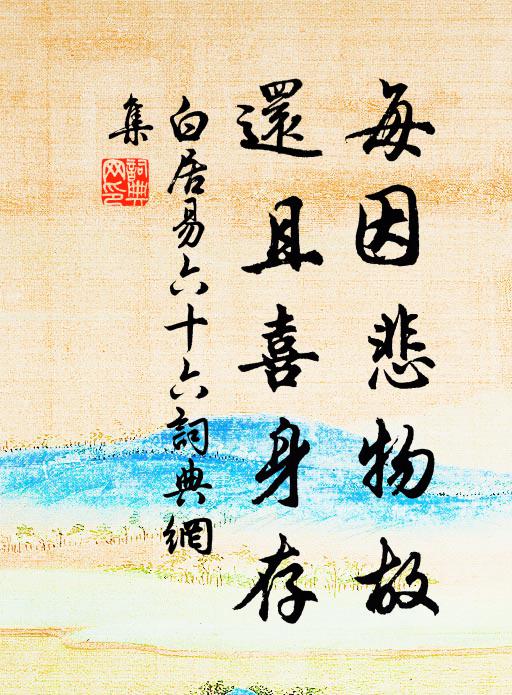 每因悲物故
還且喜身存
白居易六十六詞典網
集
詞典網印